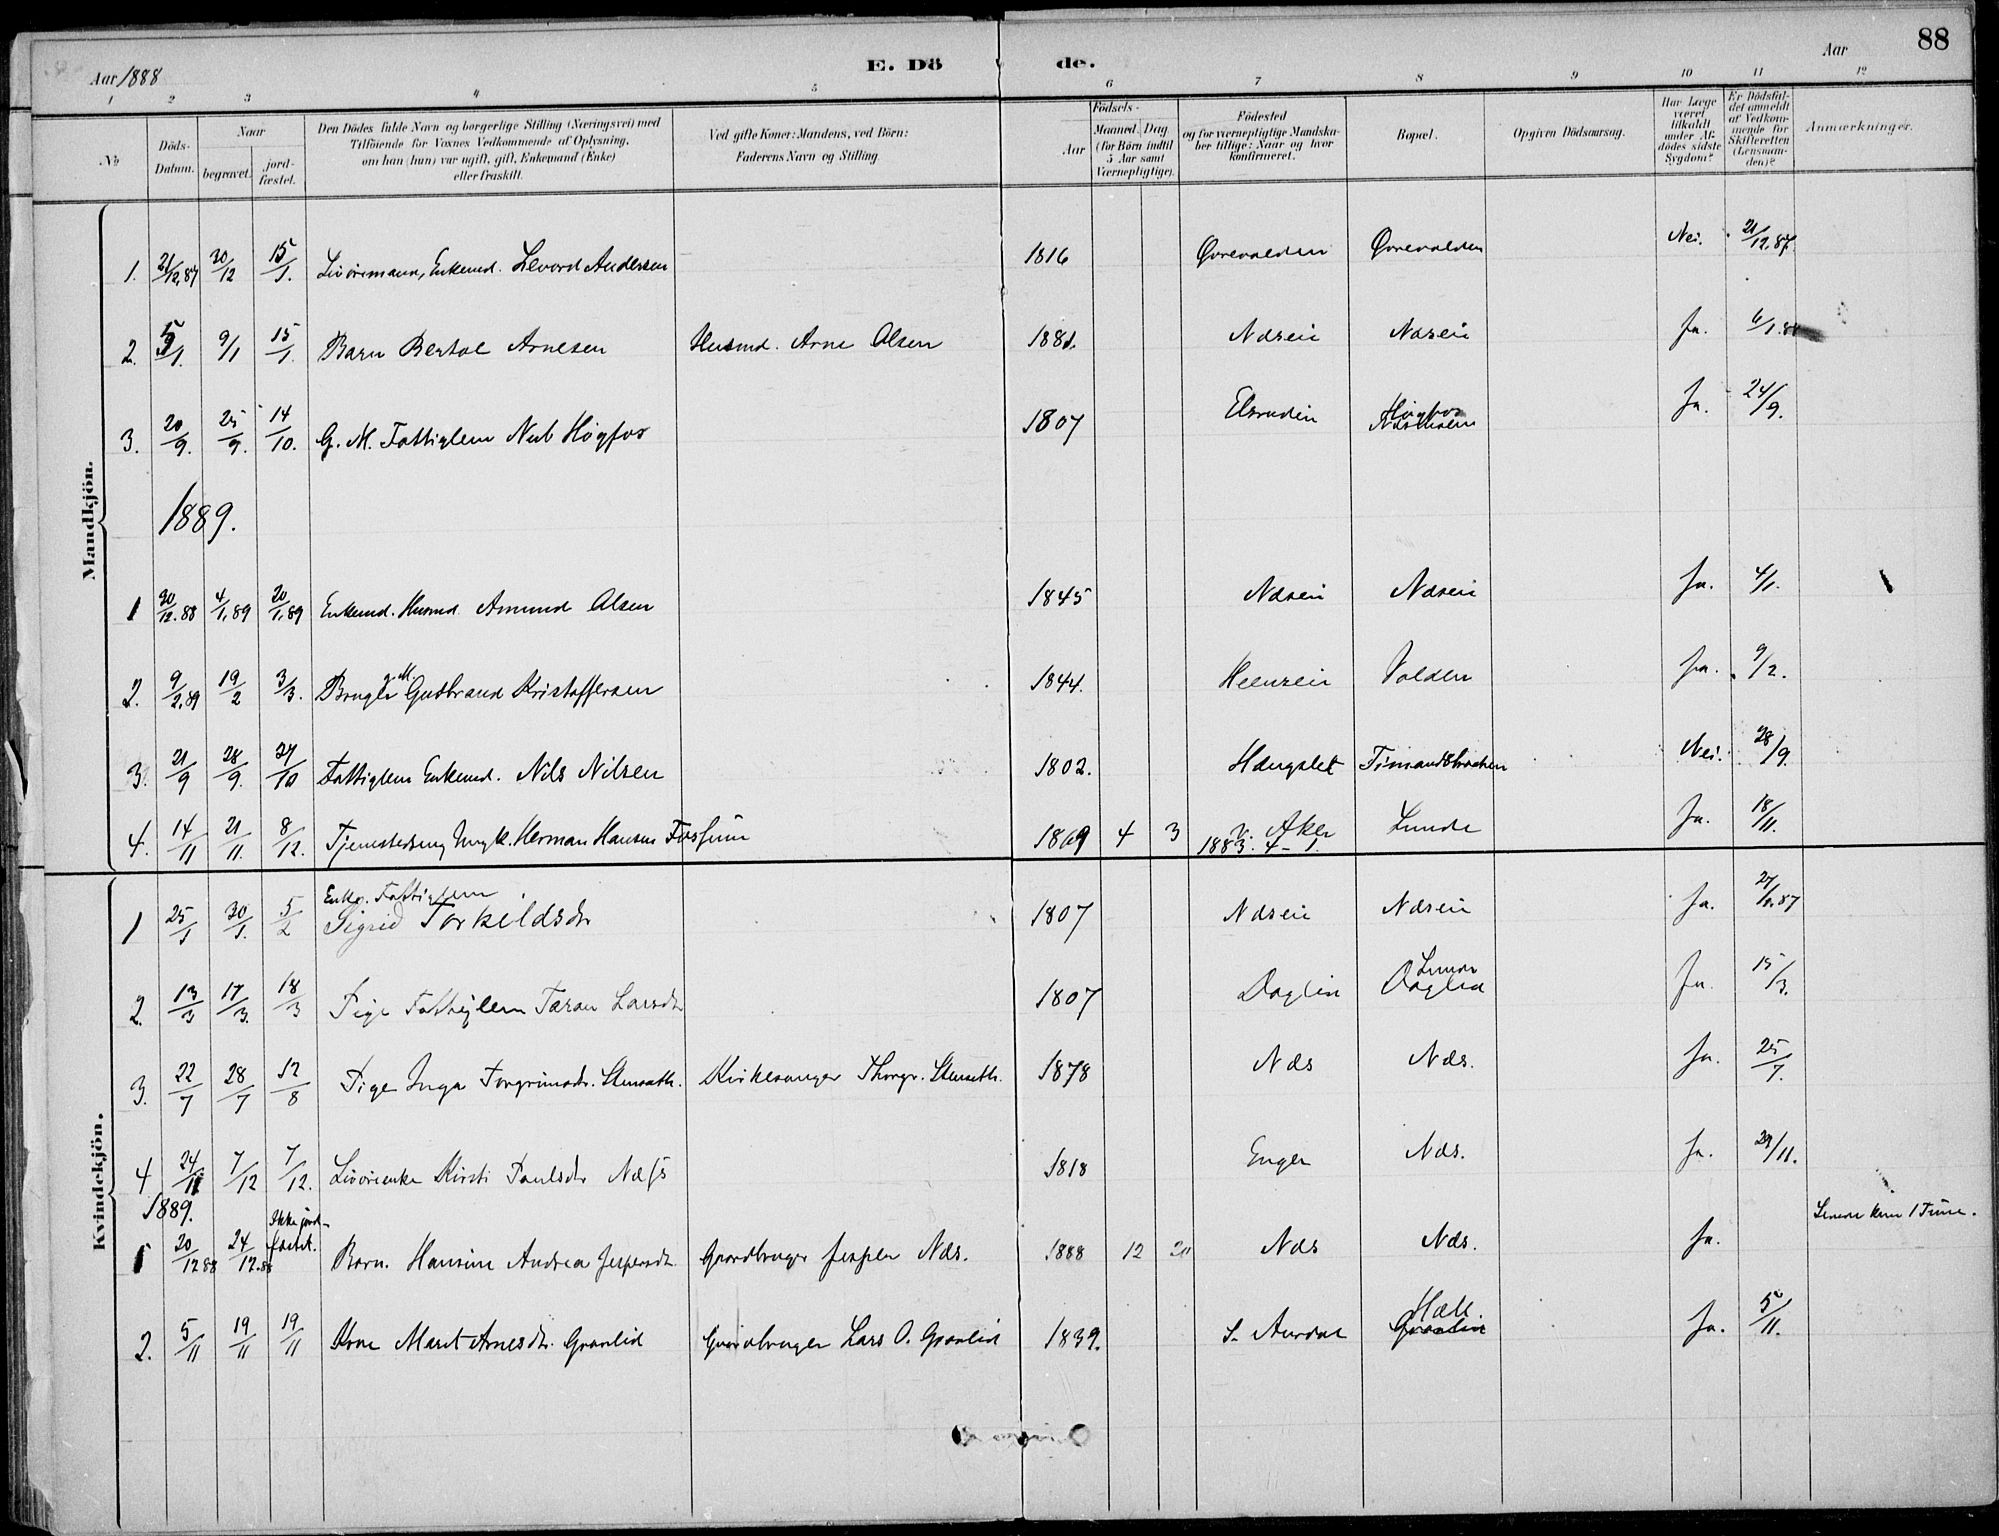 88
Aar 1888
E. Dö de.
Aar
1 2 3 4 5 6 7 8 9 10 11 12
No
Döds-Datum.
Naar
begravet.
jord-fæstet.
Den Dödes fulde Navn og borgerlige Stilling (Næringsvei) med
Tilföiende for Voxnes Vedkommende af Oplysning,
om han (hun) var ugift, gift, Enkemand (Enke)
eller fraskilt.
Ved gifte Koner: Mandens, ved Börn:
Faderens Navn og Stilling.
Födsels-
Aar
Maaned. Dag
(for Börn indtil
5 Aar samt
Værnepligtige).
Födested
og for værnepligtige Mandska-
ber tillige: Naar og hvor
konfirmeret.
Bopæl.
Opgiven Dödsaarsag.
Har Læge
været
tilkaldt
under Af-
dödes sidste
Sygdom?
Er Dödsfal-
det anmeldt
af Vedkom-
mende for
Skifteretten
(Lensman-
den)?
Anmærkninger.
Mandkjön.
1. 21/12.87 30/12 15/1. Livöremand, Enkemd. Levord Andersen 1816 Qvrevolden Qvrevolden Nei. 21/12.87.
2. 5/1. 9/1 15/1. Barn Bertol Arnesen Husmd. Arne Olsen 1881. Næseie Næseie Ja. 6/1.88
3. 20/9. 25/9. 14/10. G. M. Fattiglem Högfos 1807 Högfos Ja. 24/9.
1889.
1 30/12.88 4/1.89 20/1.89 Enkemd. Husmd. Amund Olsen 1845 Næseie Næseie Ja. 4/1.
2. 9/2.89 19/2 3/3. g. M. Gudbrand Kristoffersen 1844. Volden Ja. 9/2.
3. 21/9 28/9. 27/10 Fattiglem Enkemd. Nils Nilsen 1802. Nei. 28/9.
4. 14/11 21/11. 8/12. Ungk. Herman Hansen Fossum 1869 4 3 V. Aker 1883. 4-1 Lunde Ja. 18/11.
Kvindekjön.
1 25/1 30/1. 5/2 Enke. Fattiglem Sigrid Torkildsdr 1807 Næseie Næseie Ja.
2. 13/3 17/3. 18/3 Pige Fattiglem Taran Larsdtr 1807 Daglin Lunde Ja. 15/3.
3. 22/7 28/7 12/8 Pige Inga Torgrimsdr. Stensæth. Kirkesanger Thorgr. Stensæth. 1878 Næs Næs. Ja. 25/7.
4 24/11 7/12 7/12. Livörenke Kirsti Paulsdr Næss 1818 Enger Næs. Ja. 29/11.
1889.
1 20/12 88 24/12.88 Ikke jord-fæstet. Barn. Hansine Andrea Jespersdtr. Gaardbruger Jesper Næs. 1888 12 20 Næs Næs. Ja. Levede kun 1 Time.
2. 5/11 19/11 19/11 Kone Marit Arnesdr. Granlid Gaardbruger Lars O. Granlid 1839. S. Aurdal Granlid Ja. 5/11.